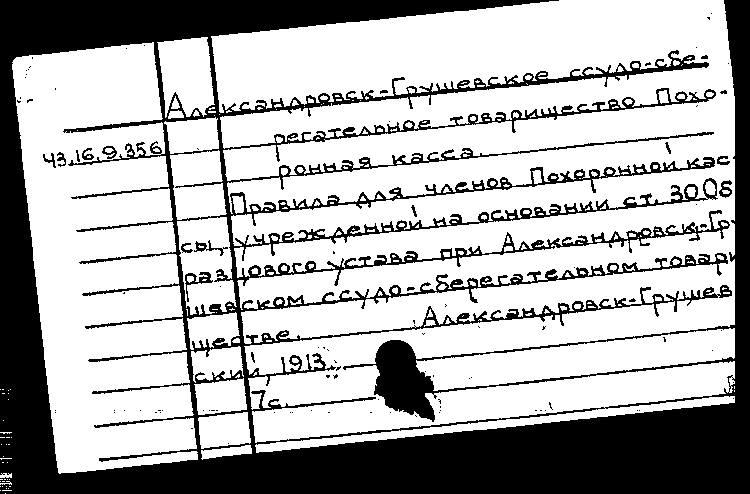 Александровск-Грушевское ссудо-сбе-
43.16.9.356 регательное товарищество. Похо-
ронная касса.
Правила для членов Похоронной кас-
сы, учрежденной на основании ст. 30 Об
разцового устава при Александр[овск]-Гру
шевском ссудо-сберегательном товари
ществе. Александровск-Грушев
ский, 1913.
7с.